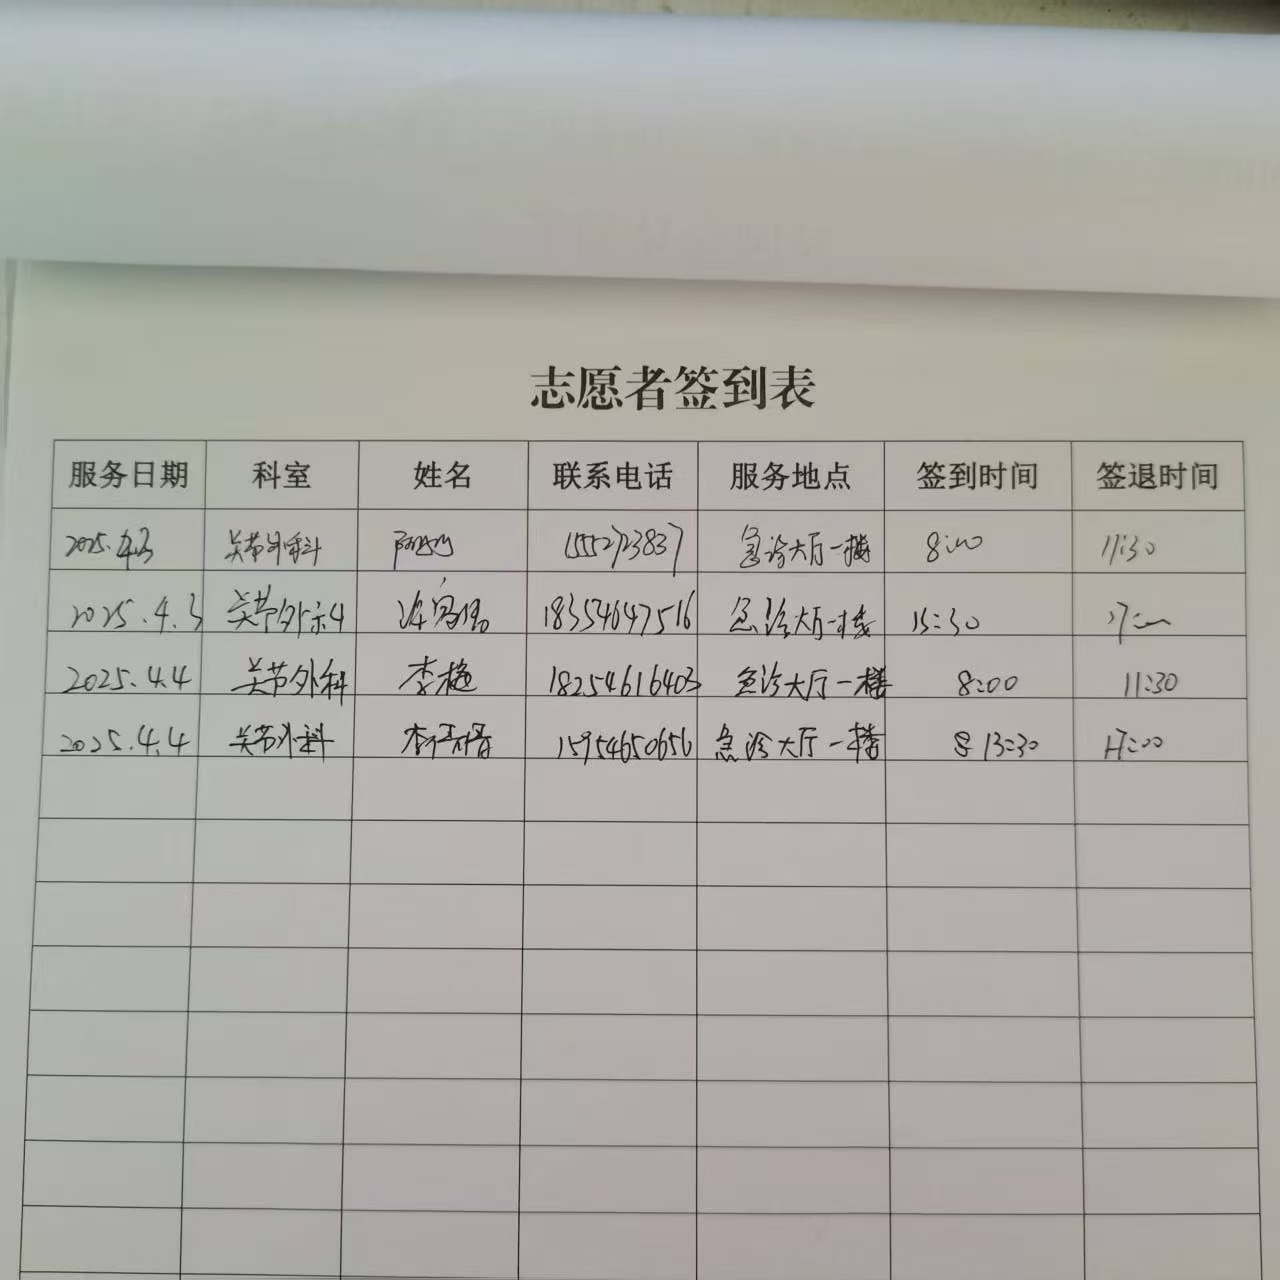 志愿者签到表
服务日期 科室 姓名 联系电话 服务地点 签到时间 签退时间
2025.4.3 关节外科 急诊大厅一楼 8:00 11:30
2025.4.3 关节外科 18354647516 急诊大厅一楼 17:00
2025.4.4 关节外科 李梅 18254616403 急诊大厅一楼 8:00 11:30
2025.4.4 关节外科 15954650656 急诊大厅一楼 13:30 17:00